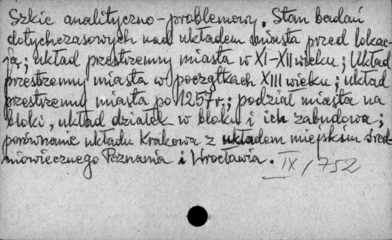 Szkic analityczno-problemowy. Stan badań
dotychczasowych nad układem miasta przed lokac-
ją; układ przestrzenny miasta w XI-XII wieku; Układ
przestrzenny miasta w początkach XIII wieku; układ
przestrzenny miasta po 1257r.; podział miasta na
bloki, układ działek w bloku i ich zabudowa;
porównanie układu Krakowa z układem miejskim śred-
niowiecznego Poznania i Wrocławia. IX/752